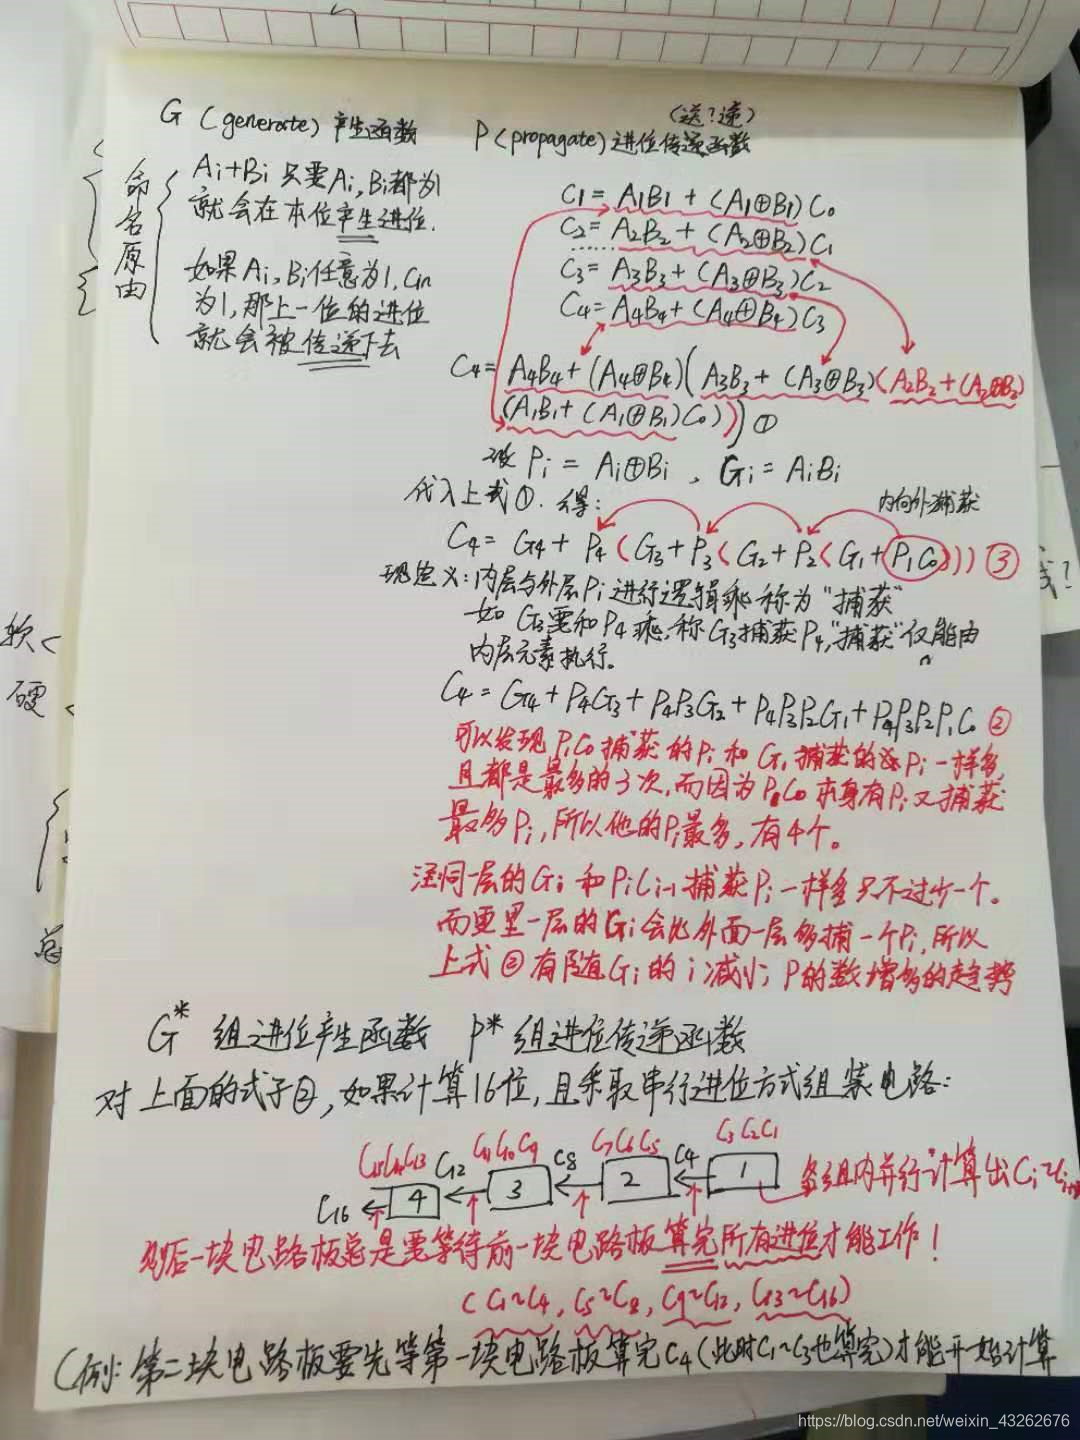 G (generate) 产生函数
(送?递)
P (propagate) 进位传递函数
命名原由
Ai+Bi 只要Ai,Bi都为1
就会在本位产生进位.
如果Ai,Bi任意为1,Cin
为1,那上一位的进位
就会被传递下去
C1= A1B1 + (A1⊕B1)C0
C2= A2B2 + (A2⊕B2)C1
C3= A3B3 + (A3⊕B3)C2
C4= A4B4 + (A4⊕B4)C3
C4= A4B4 + (A4⊕B4)(A3B3 + (A3⊕B3)(A2B2+(A2⊕B2)
(A1B1+(A1⊕B1)C0))) ①
设 Pi = Ai⊕Bi , Gi = AiBi
代入上式①. 得:
内向外捕获
C4= G4+ P4(G3+P3(G2+P2(G1+P1C0))) ③
现定义:内层与外层Pi进行逻辑乘称为"捕获"
如G3要和P4乘,称G3捕获P4,"捕获"仅能由
内层元素执行。
C4= G4+P4G3+P4P3G2+P4P3P2G1+P4P3P2P1C0 ②
可以发现P1C0捕获的Pi和G1捕获的Pi一样多,
且都是最多的3次,而因为P1C0本身有Pi又捕获
最多Pi,所以他的Pi最多,有4个。
同一层的Gi和PiCi-1捕获Pi一样多只不过少一个。
而更里一层的Gi会比外面一层多捕一个Pi,所以
上式②有随Gi的i减小,P的数增多的趋势
G* 组进位产生函数 P* 组进位传递函数
对上面的式子②,如果计算16位,且采取串行进位方式组装电路:
C15C14C13 C12 C11C10C9 C8 C7C6C5 C4 C3C2C1
C16 4 3 2 1 各组内并行计算出Ci~
则后一块电路板总是要等待前一块电路板算完所有进位才能工作!
(C1~C4, C5~C8, C9~C12, C13~C16)
(例:第二块电路板要先等第一块电路板算完C4(此时C1~C3也算完)才能开始计算
软
硬
总